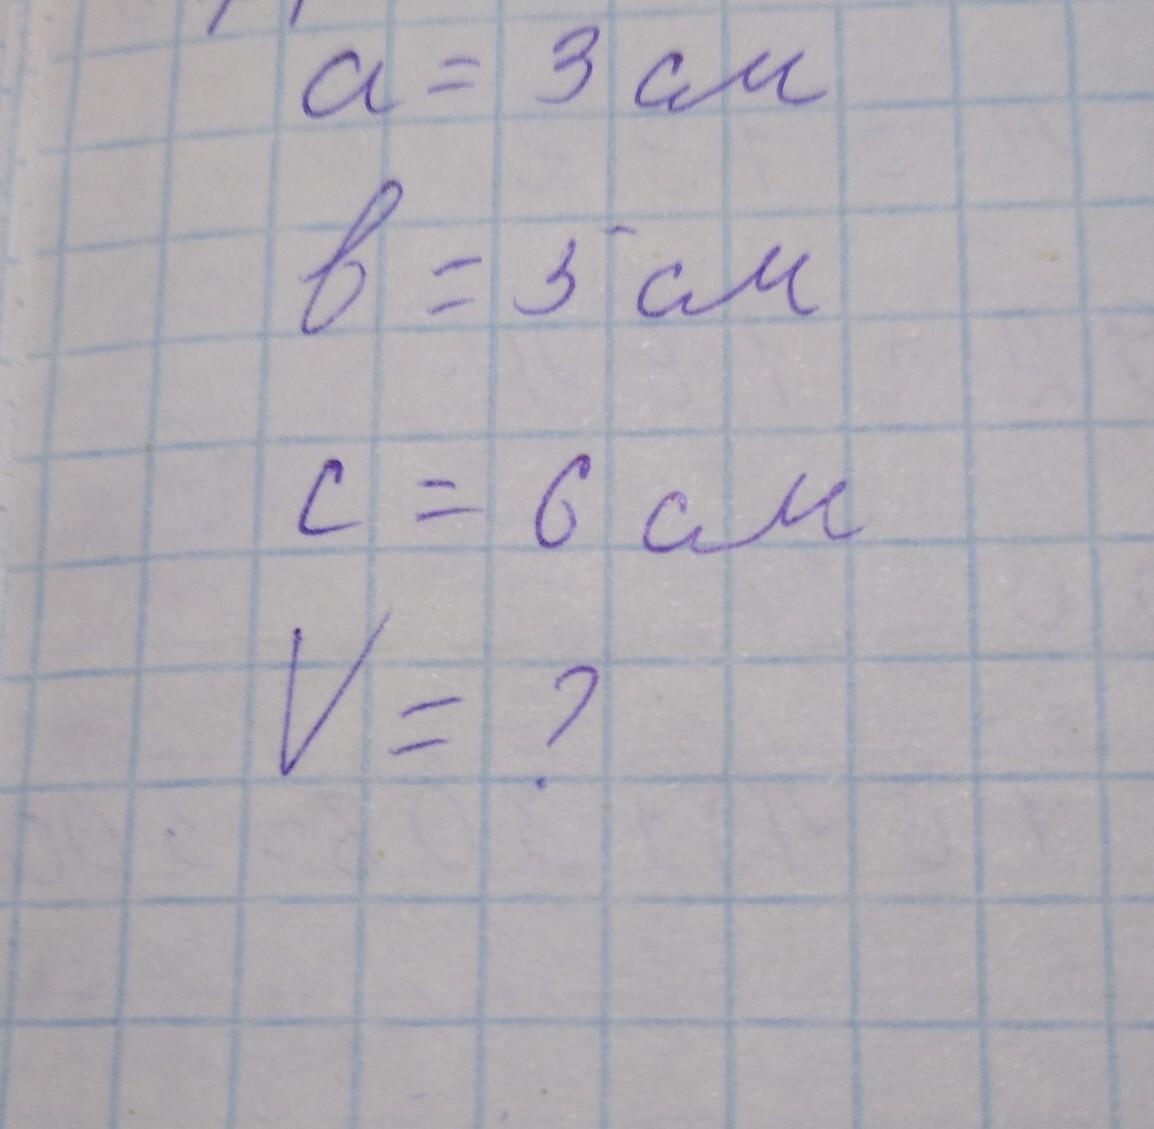 a = 3 см
b = 5 см
c = 6 см
V = ?